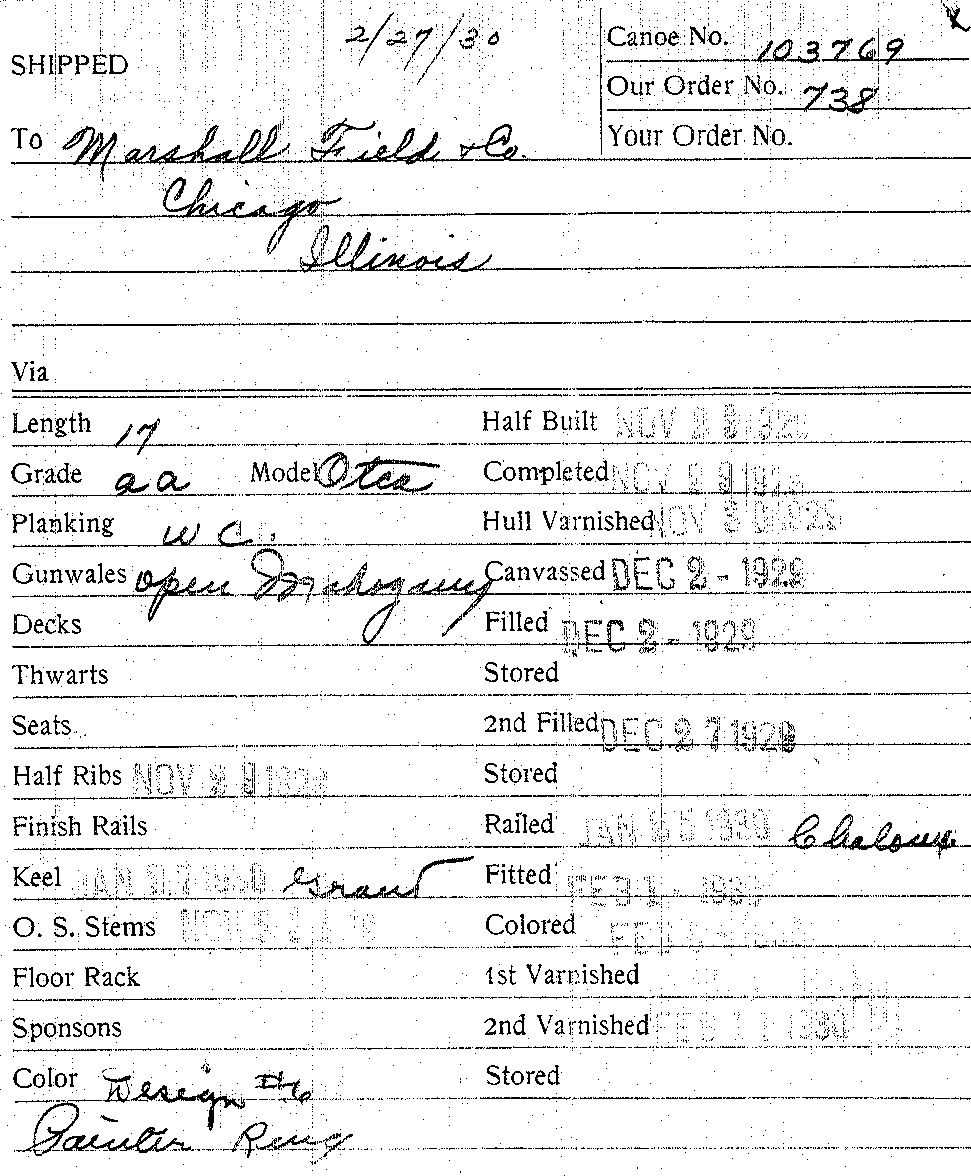 2/27/30
Canoe No. 103769
SHIPPED
Our Order No. 738
To Marshall Field & Co.
Your Order No.
Chicago
Illinois
Via
Length 17 Half Built NOV 2 8 1929
Grade aa Model Otca Completed NOV 2 9 1929
Planking W C. Hull Varnished NOV 3 0 1929
Gunwales open Mahogany Canvassed DEC 2 - 1929
Decks Filled DEC 2 - 1929
Thwarts Stored
Seats 2nd Filled DEC 2 7 1929
Half Ribs NOV 2 1929 Stored
Finish Rails Railed JAN 2 5 1930
Keel JAN 2 7 1930 Fitted FEB 1 - 1930
O. S. Stems NOV 2 Colored FEB
Floor Rack 1st Varnished
Sponsons 2nd Varnished FEB 1 1 1930
Color Design #6 Stored
Painter Ring